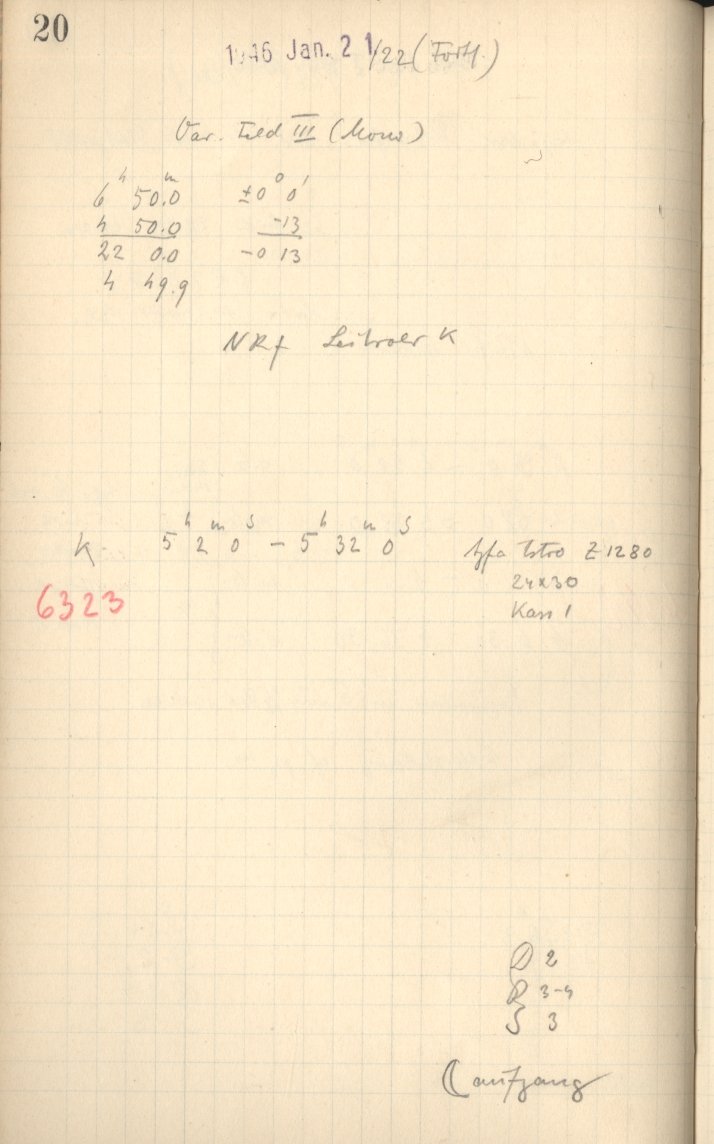 20
1946 Jan. 21/22 (Fortf.)
Var. Feld III (Mono)
6ʰ 50.0ᵐ ±0° 0'
4 50.0 -13
22 0.0 -0 13
4 49.9
NRf K
K 5ʰ 2ᵐ 0ˢ – 5ʰ 32ᵐ 0ˢ Agfa Astro Z 1280
24x30
6323
Kass 1
D 2
R 3-4
S 3
☾ aufgang